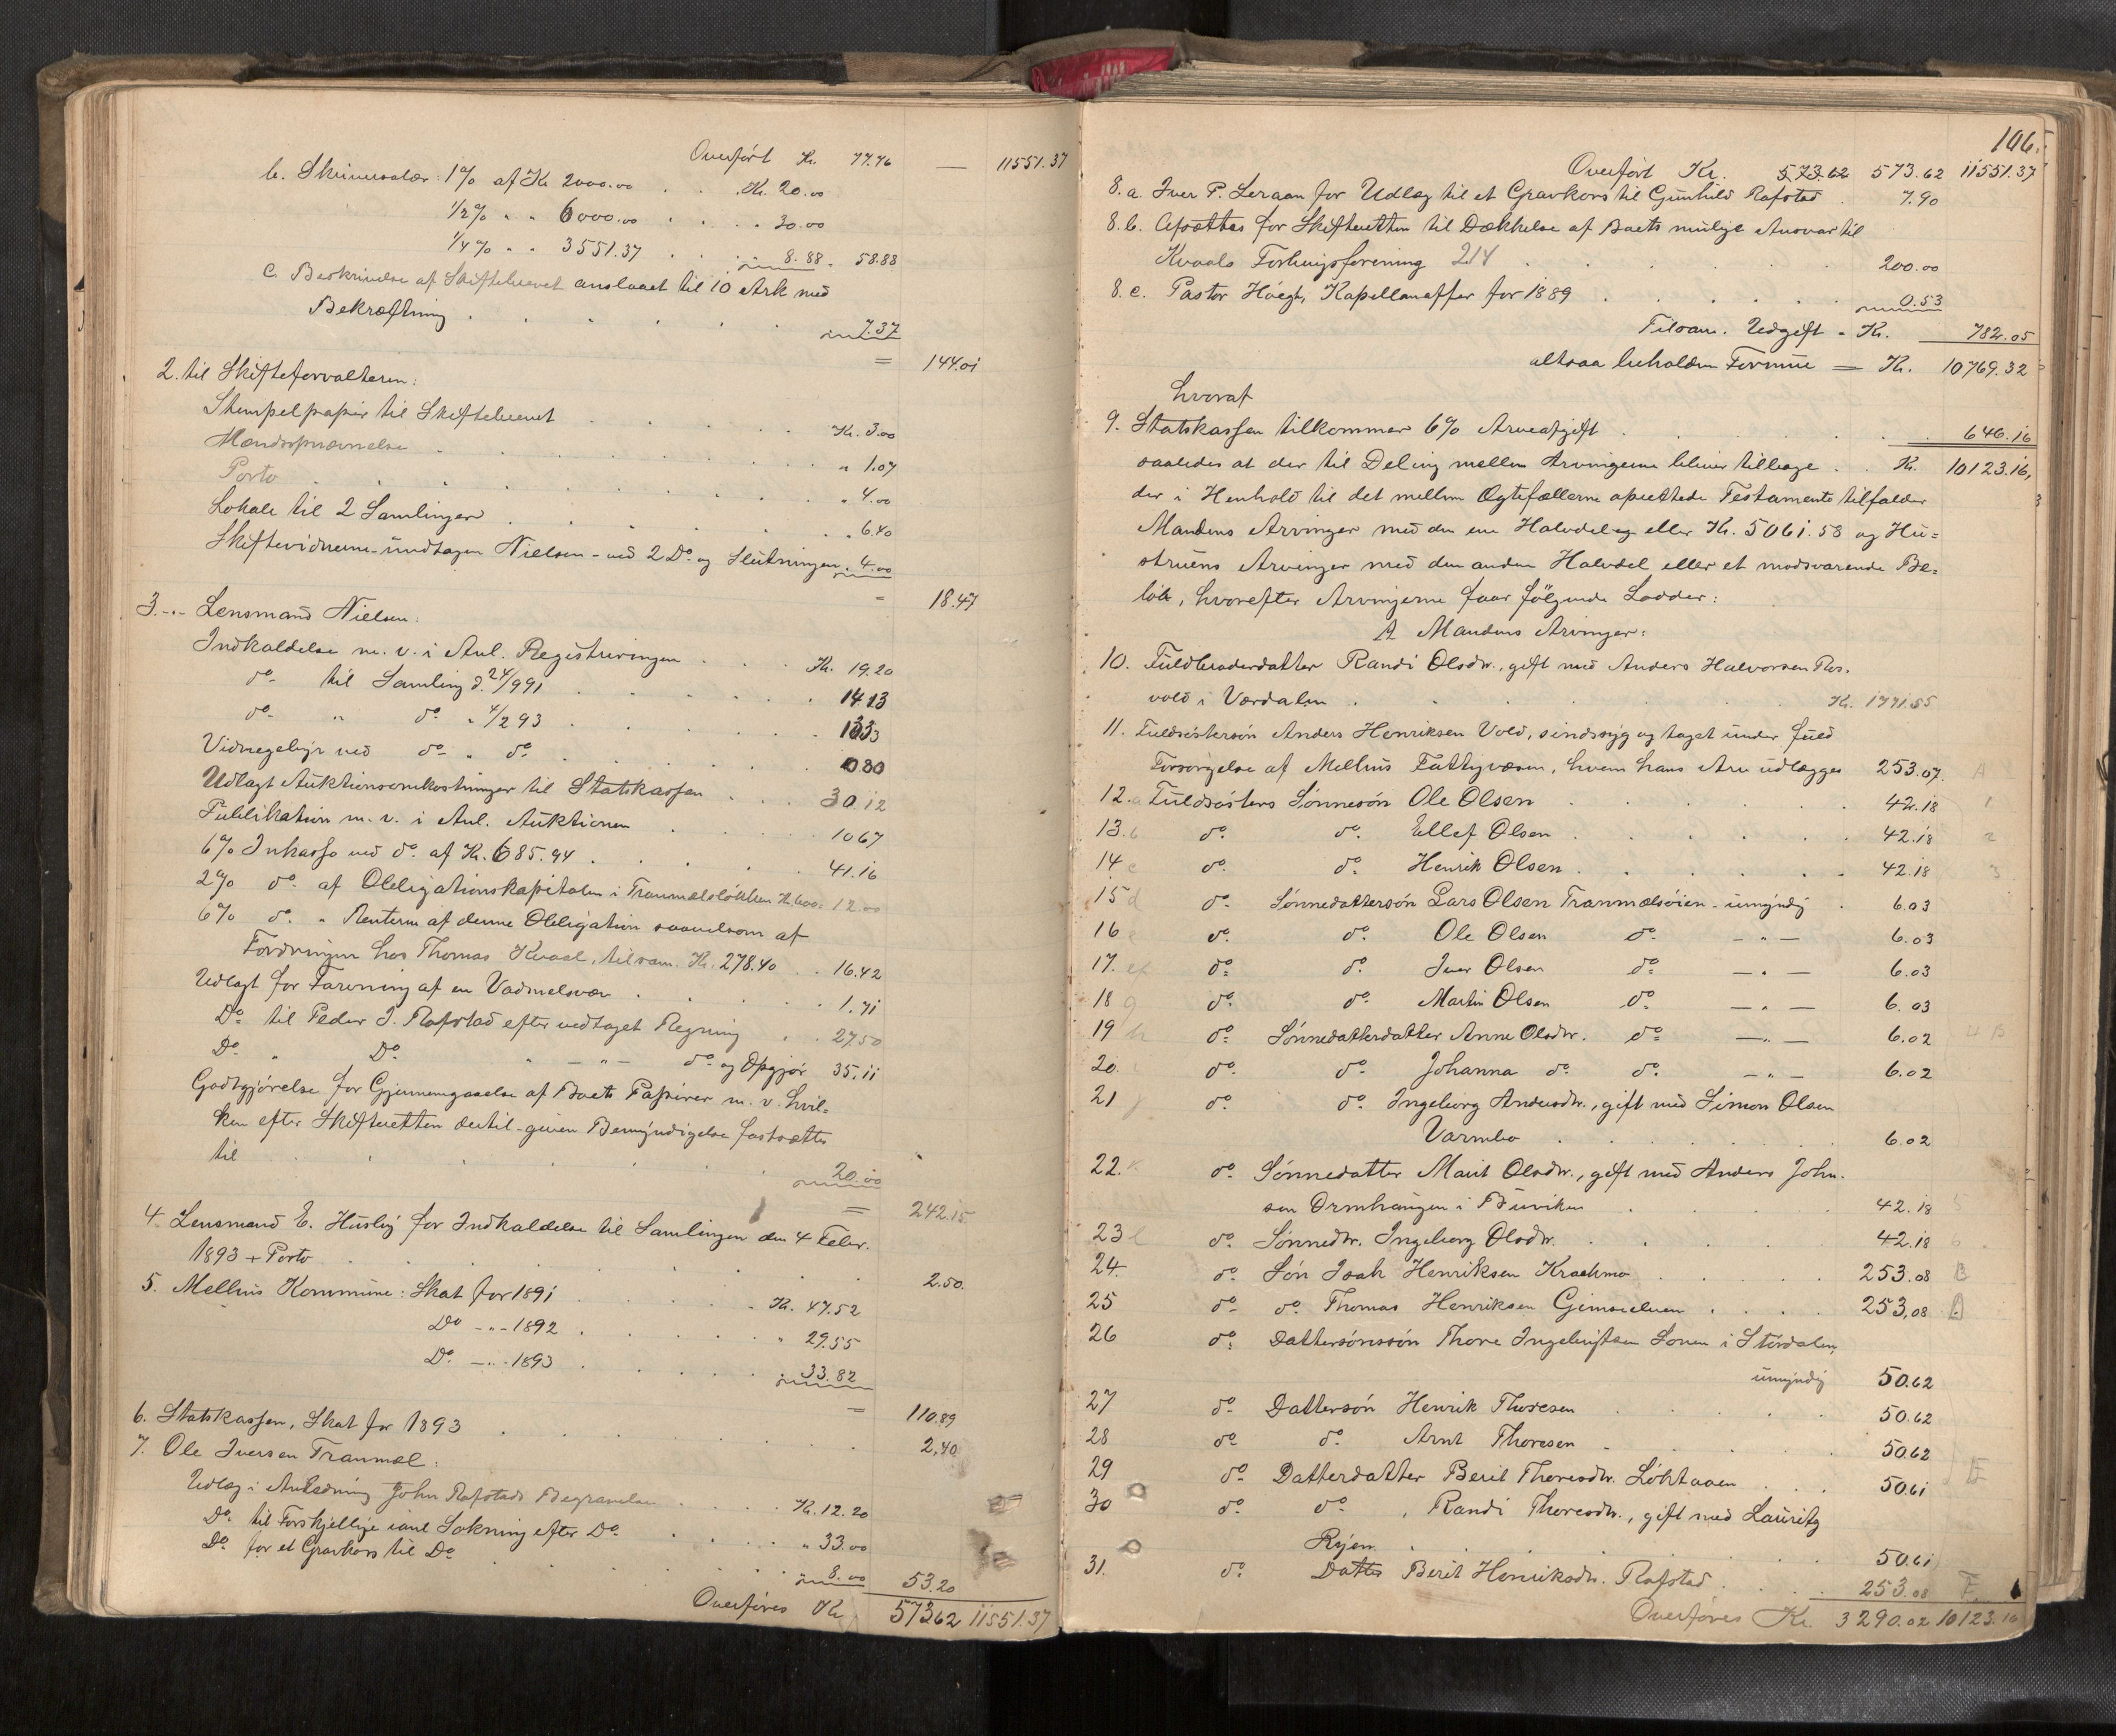 Overført Kr. 77.76 — 11551.37
b. Skriversalær: 1% af Kr. 2000.00 . . Kr. 20.00
1/2% " " 6000.00 . . " 30.00
1/4% " " 3551.37 . . " 8.88 " 58.88
c. Beskrivelse af Skiftebrevet anslaaet til 10 Ark med
Bekræftning . . . . . . " 7.37
= 144.01
2. til Skifteforvalteren:
Stempelpapir til Skiftebrevet . . . . . Kr. 3.00
Mændsopnævnelse . . . . . . " 1.07
Porto . . . . . . . " 4.00
Lokale til 2 Samlinger . . . . . " 6.40
Skiftevidnerne undtagen Nielsen - ved 2 Do. og Slutningen " 4.00
= 18.47
3. -"- Lensmand Nielsen:
Indkaldelse m. v. i Anl. Registreringen . . . Kr. 19.20
do. til Samling d. 24/9 91 . . . . . 14 13
do. " do. " 4/2 93 . . . . . 1333
Vidnegebyr ved do. " do. . . . . . 080
Udlagt Auktionsomkostninger til Statskassen . . . 30.12
Publikation m. v. i Anl. Auktionen . . . . 10 67
6% Inkasso ved do. af Kr. 685.94 . . . . 41.16
2% do. af Obligationskapitalen i Tranmælsløkken Kr. 600: 12.00
6% do. " Renterne af denne Obligation saavelsom af
Fordringen hos Thomas Kvaal, tilsam. Kr. 278.40 . . 16.42
Udlagt for Farvning af en Vadmelsvæv . . . . 1.71
Do. til Peder J. Rafstad efter vedtaget Regning . . 27.50
Do. " Do. " — " — do. og Opgjør 35.11
Godtgjørelse for Gjennemgaaelse af Boets Papirer m. v. hvil=
ken efter Skifteretten dertil given Bemyndigelse fastsættes
til . . . . . . . 20.00
= 242.15
4. Lensmand E. Husby for Indkaldelse til Samlingen den 4 Febr.
1893 + Porto . . . . . . . 2.50.
5. Melhus Kommune: Skat for 1891 . . . . Kr. 47.52
Do. -"- 1892 . . . . . " 29.55
Do. -"- 1893 . . . . . " 33.82
= 110.89
6. Statskassen, Skat for 1893 . . . . . . 2.40
7. Ole Iversen Tranmæl:
Udlæg i Anledning John Rafstads Begravelse . . . . Kr. 12.20
Do. til Forskjellige saml Sokning efter Do. . . . . " 33.00
Do. for et Gravkors til Do. . . . . . " 8.00 53.20
Overføres Kr. 573.62 11551.37
106.
Overført Kr. 573.62 573.62 11551.37
8. a. Iver P. Leraan for Udlæg til et Gravkors til Gunhild Rafstad . 7.90
8. b. Afsættes for Skifteretten til Dækkelse af Boets mulige Ansvar til
Kvaals Forlingsforening 214 . . . . . . 200.00
8. c. Pastor Høegh, Kapellanoffer for 1889 . . . . . 0.53
Tilsam. Udgift - Kr. 782.05
altsaa beholden Formue — Kr. 10769.32
hvoraf
9. Statskassen tilkommer 6% Arveafgift . . . . . 646.16
saaledes at der til Deling mellem Arvingerne bliver tilbage . . Kr. 10123.16,
der i Henhold til det mellem Ægtefællerne oprettede Testamente tilfalder
Mandens Arvinger med den ene Halvdel eller Kr. 5061.58 og Hu=
struens Arvinger med den anden Halvdel eller et modsvarende Be=
løb, hvorefter Arvingerne faar følgende Lodder:
A Mandens Arvinger:
10. Fuldbroderdatter Randi Olsdtr., gift med Anders Halvorsen Ros.
vold i Værdalen . . . . . . Kr. 1771.55
11. Fuldsøstersøn Anders Henriksen Vold, sindssyg og taget under fuld
Forsørgelse af Melhus Fattigvæsen, hvem hans Arv udlægges 253.07. A
12. a Fuldsøsters Sønnesøn Ole Olsen . . . . . 42.18 1
13. b do. do. Ellef Olsen . . . . . 42.18 2
14 c do. do. Henrik Olsen . . . . . 42.18 3
15 d do. Sønnedattersøn Lars Olsen Tranmælsøien - umyndig . 6.03
16 e do. do. Ole Olsen do. — " — 6.03
17. ef do. do. Iver Olsen do. — " — 6.03
18 g do. do. Martin Olsen do. — " — 6.03
19 h do. Sønnedatterdatter Anne Olsdtr. do. — " — 6.02 4 B
20. i do. do. Johanna do. do. — " — 6.02
21 j do. do. Ingeborg Andersdtr., gift med Simon Olsen
Varmbo . . . . . . 6.02
22. k do. Sønnedatter Marit Olsdtr., gift med Anders John.
sen Ormhaugen i Buviken . . . . . 42.18 5
23 l do. Sønnedtr. Ingeborg Olsdtr. . . . . . 42.18 6
24. do. Søn Isak Henriksen Kraakmo . . . . 253.08 C
25 do. do. Thomas Henriksen Gimseelven . . . . 253.08 D
26 do. Dattersønssøn Thore Ingebrigtsen Sonen i Stördalen,
umyndig 50.62
27 do. Dattersøn Henrik Thoresen . . . . . 50.62
28 do. do. Arnt Thoresen . . . . . 50.62
29 do. Datterdatter Beril Thoresdtr. Løkkaaen . . . 50.61 E
30 do. do. , Randi Thoresdtr., gift med Lauritz
Ryen . . . . . . 50.61
31. do. Datter Berit Henriksdtr. Rafstad . . . . 253.08 F.
Overføres Kr. 3290.02 10123.16